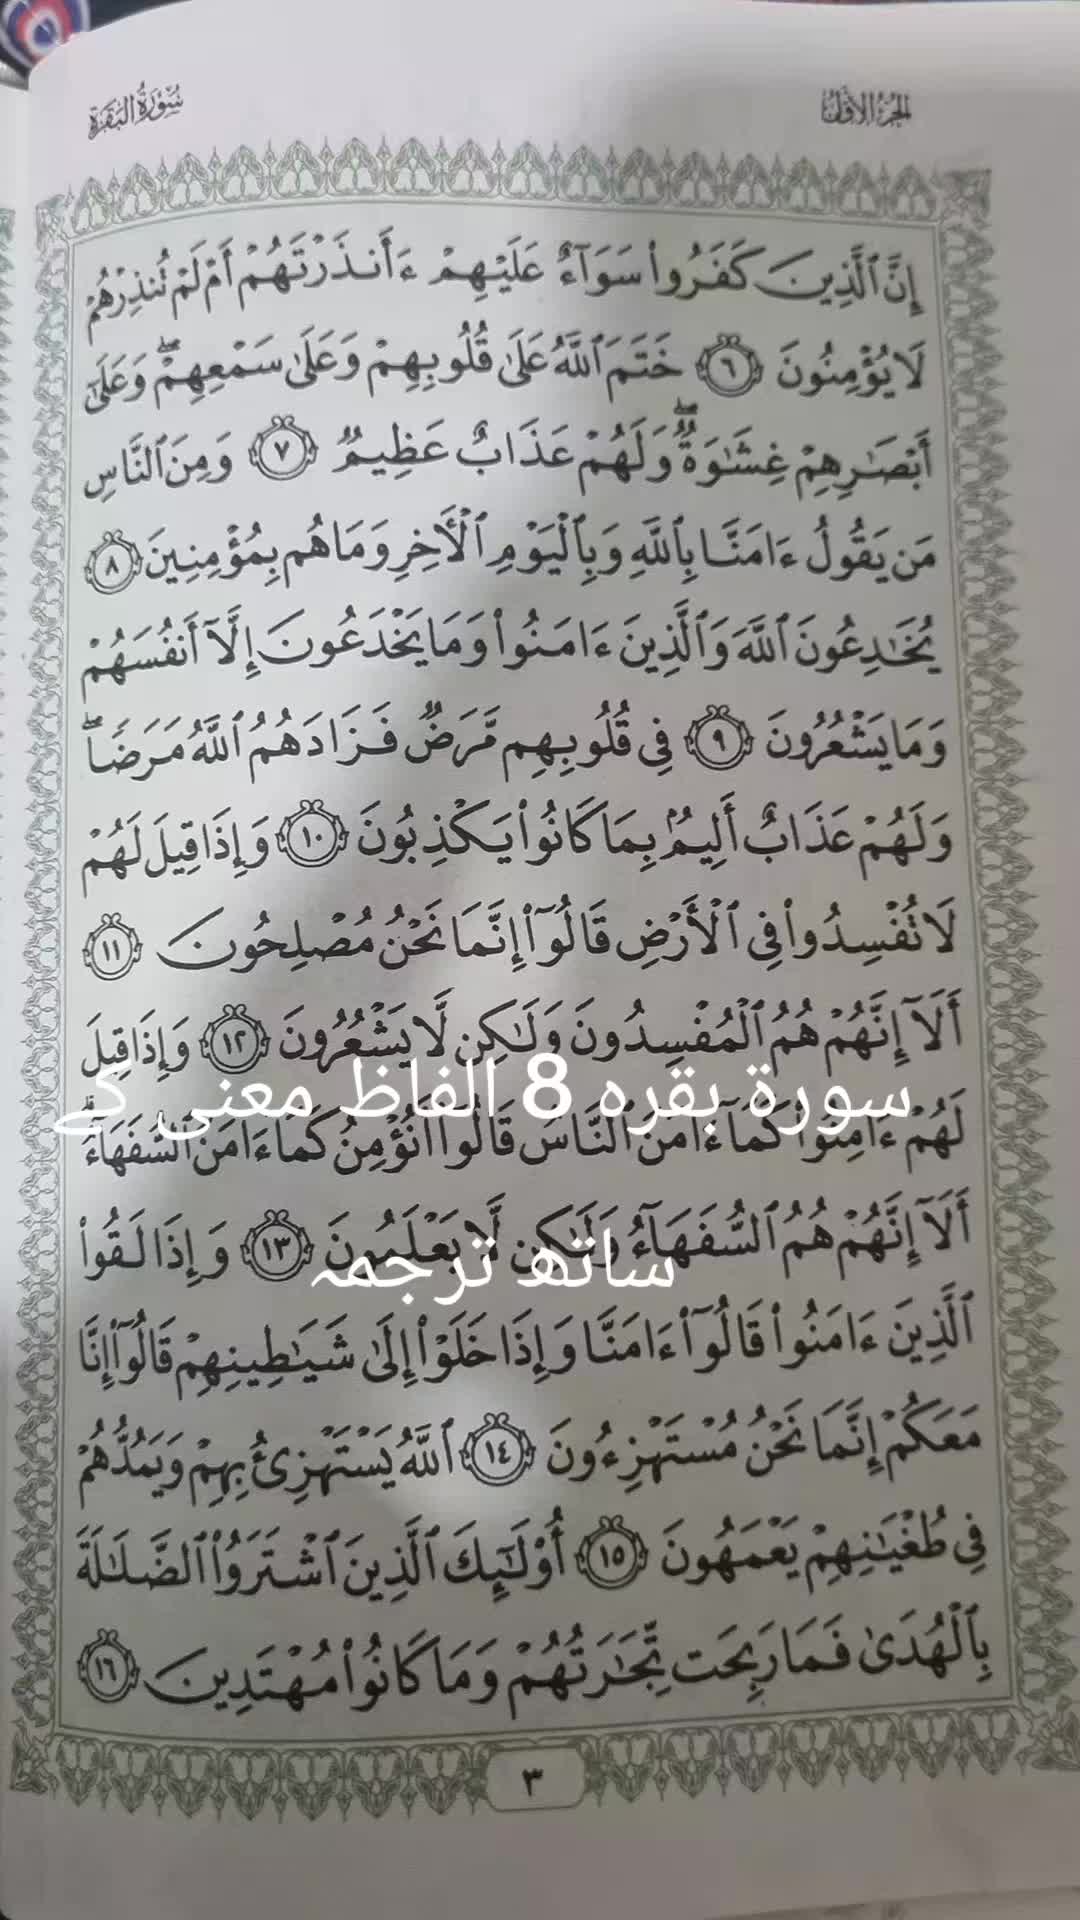 سُورَةُ البَقَرَةِ
الجُزْءُ الأَوَّلُ
إِنَّ ٱلَّذِينَ كَفَرُوا۟ سَوَآءٌ عَلَيْهِمْ ءَأَنذَرْتَهُمْ أَمْ لَمْ تُنذِرْهُمْ
لَا يُؤْمِنُونَ ٦ خَتَمَ ٱللَّهُ عَلَىٰ قُلُوبِهِمْ وَعَلَىٰ سَمْعِهِمْ ۖ وَعَلَىٰٓ
أَبْصَـٰرِهِمْ غِشَـٰوَةٌ ۖ وَلَهُمْ عَذَابٌ عَظِيمٌ ٧ وَمِنَ ٱلنَّاسِ
مَن يَقُولُ ءَامَنَّا بِٱللَّهِ وَبِٱلْيَوْمِ ٱلْـَٔاخِرِ وَمَا هُم بِمُؤْمِنِينَ ٨
يُخَـٰدِعُونَ ٱللَّهَ وَٱلَّذِينَ ءَامَنُوا۟ وَمَا يَخْدَعُونَ إِلَّآ أَنفُسَهُمْ
وَمَا يَشْعُرُونَ ٩ فِى قُلُوبِهِم مَّرَضٌ فَزَادَهُمُ ٱللَّهُ مَرَضًا ۖ
وَلَهُمْ عَذَابٌ أَلِيمٌۢ بِمَا كَانُوا۟ يَكْذِبُونَ ١٠ وَإِذَا قِيلَ لَهُمْ
لَا تُفْسِدُوا۟ فِى ٱلْأَرْضِ قَالُوٓا۟ إِنَّمَا نَحْنُ مُصْلِحُونَ ١١
أَلَآ إِنَّهُمْ هُمُ ٱلْمُفْسِدُونَ وَلَـٰكِن لَّا يَشْعُرُونَ ١٢ وَإِذَا قِيلَ
سورۃ بقرہ 8 الفاظ معنی کے
لَهُمْ ءَامِنُوا۟ كَمَآ ءَامَنَ ٱلنَّاسُ قَالُوٓا۟ أَنُؤْمِنُ كَمَآ ءَامَنَ ٱلسُّفَهَآءُ ۗ
أَلَآ إِنَّهُمْ هُمُ ٱلسُّفَهَآءُ وَلَـٰكِن لَّا يَعْلَمُونَ ١٣ وَإِذَا لَقُوا۟
ساتھ ترجمہ
ٱلَّذِينَ ءَامَنُوا۟ قَالُوٓا۟ ءَامَنَّا وَإِذَا خَلَوْا۟ إِلَىٰ شَيَـٰطِينِهِمْ قَالُوٓا۟ إِنَّا
مَعَكُمْ إِنَّمَا نَحْنُ مُسْتَهْزِءُونَ ١٤ ٱللَّهُ يَسْتَهْزِئُ بِهِمْ وَيَمُدُّهُمْ
فِى طُغْيَـٰنِهِمْ يَعْمَهُونَ ١٥ أُو۟لَـٰٓئِكَ ٱلَّذِينَ ٱشْتَرَوُا۟ ٱلضَّلَـٰلَةَ
بِٱلْهُدَىٰ فَمَا رَبِحَت تِّجَـٰرَتُهُمْ وَمَا كَانُوا۟ مُهْتَدِينَ ١٦
٣